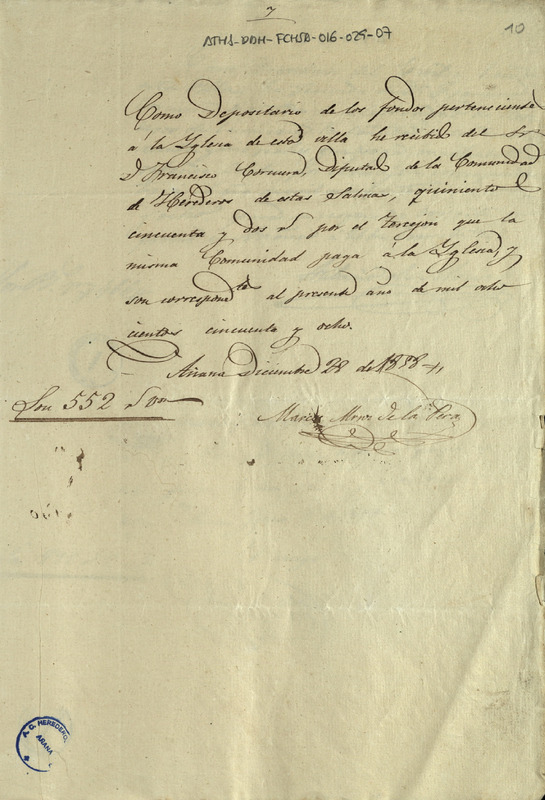 7
10
ATHA-DAH-FCHSA-016-029-07
Como Depositario de los fondos perteneciente
á la Yglesia de esta villa he recibido del Sr
D Francisco Corcuera, Diputado de la Comunidad
de Herederos de estas Salinas, quinientos
cincuenta y dos rs por el Torrejon que la
misma Comunidad paga á la Yglesia, y
son correspondte al presente año de mil ocho
cientos cincuenta y ocho.
Añana Diciembre 28 de 1858
Son 552 rs von
Marcos de la Pera
A. C. HEREDEROS
AÑANA